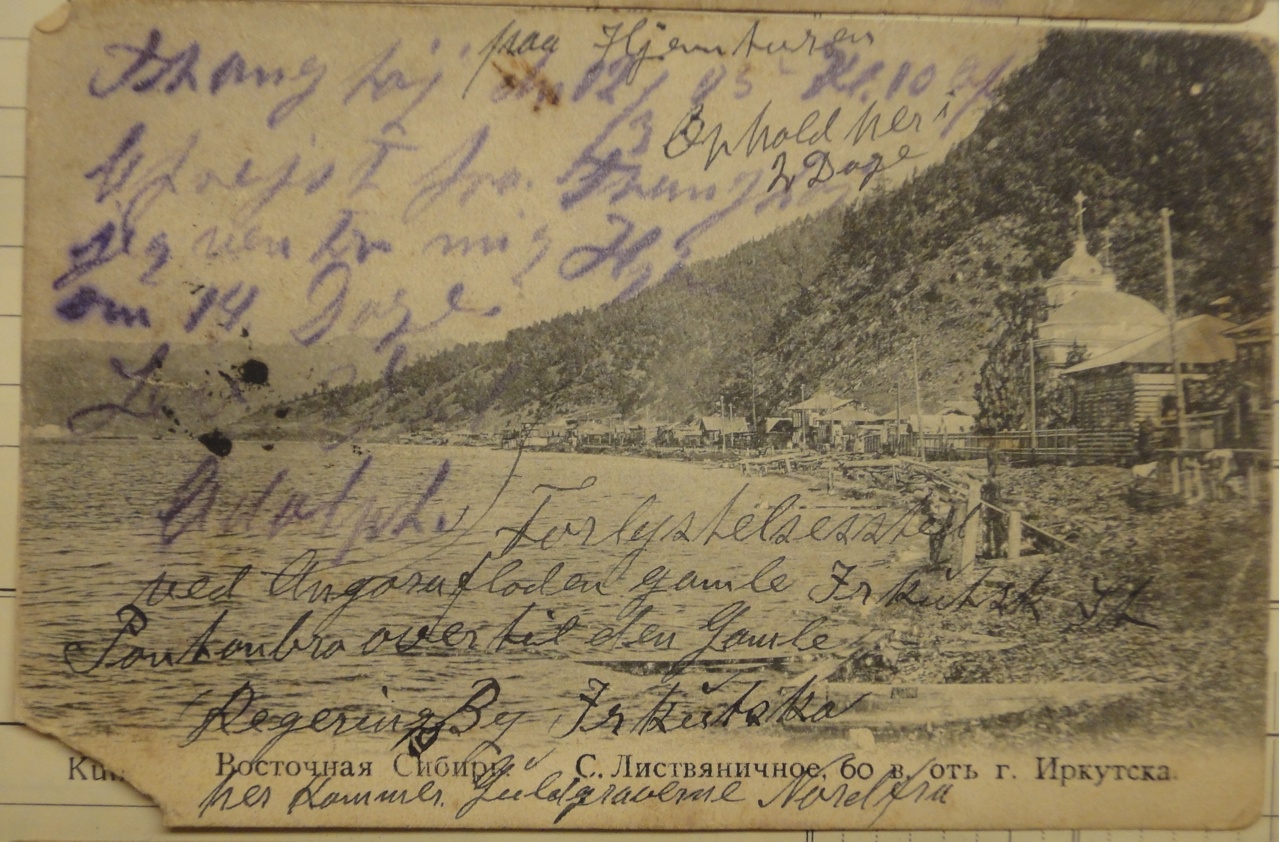 paa Hjemturen
Shanghaj d. 12/3 05 Kl. 10
Ophold her i
2 Dage
Afrejst fra Shanghaj
jeg venter mig Hj
om 14 Dage
Adolph.
Forlystelsessted
ved Angorafloden gamle Irkutsk
Pontonbro over til den Gamle
Regerings By Irkutska
Восточная Сибирь. С. Листвяничное, 60 в. отъ г. Иркутска.
her kommer Guldgraverne Nord fra